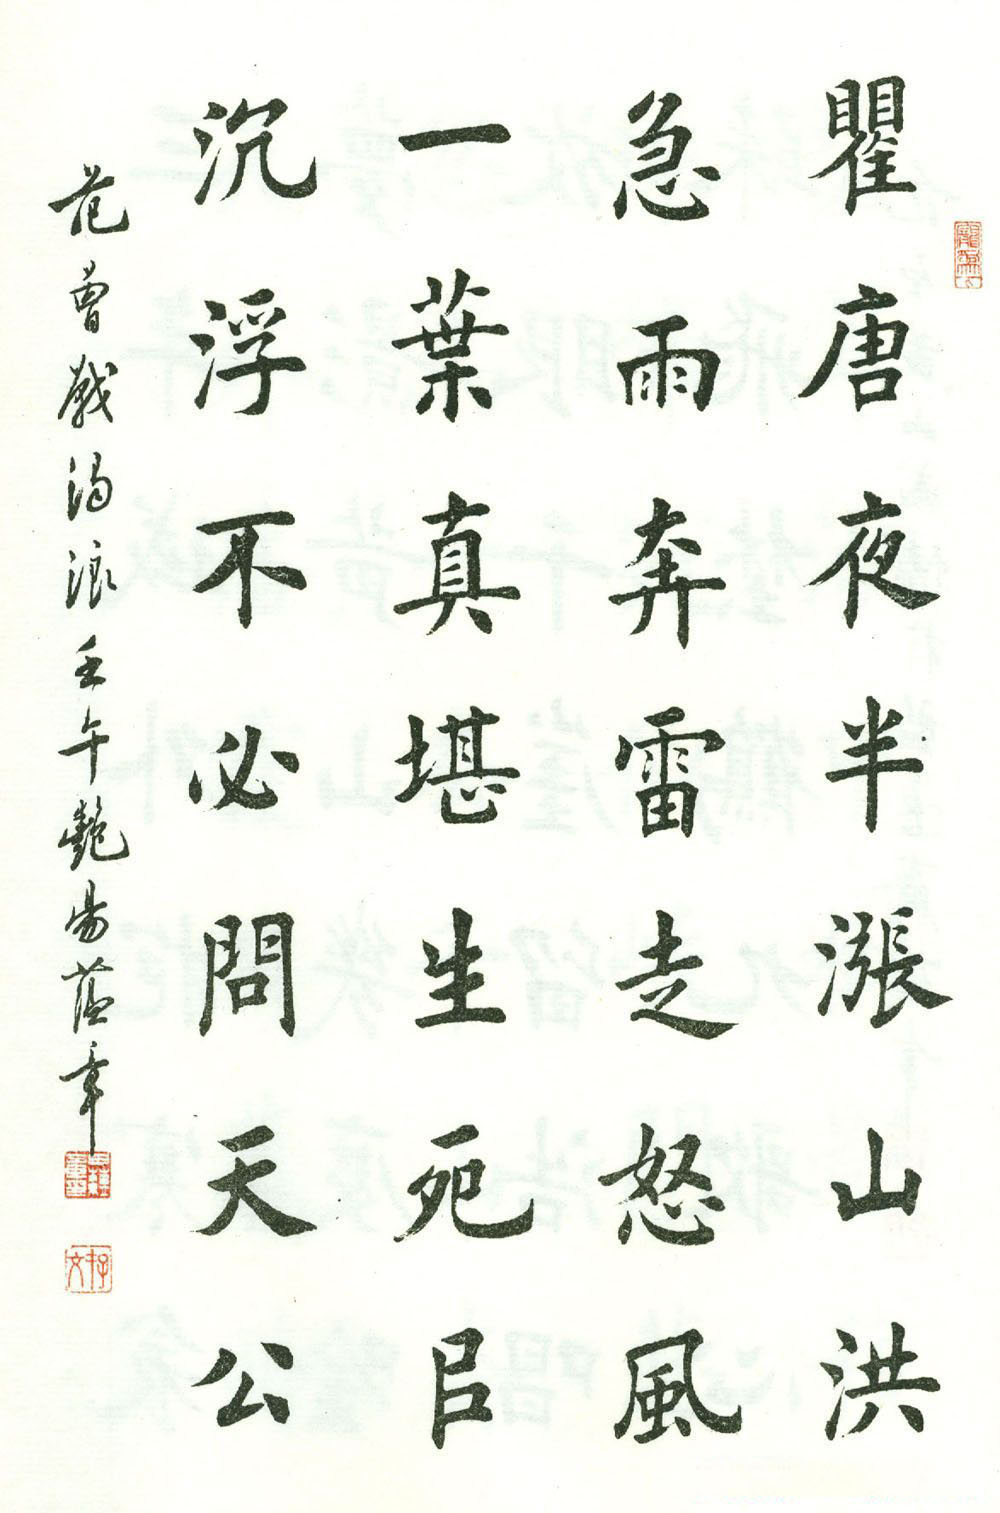 瞿唐夜半漲山洪
急雨奔雷走怒風
一葉真堪生死㠯
沉浮不必問天公
范曾戲浪壬午艷陽董章